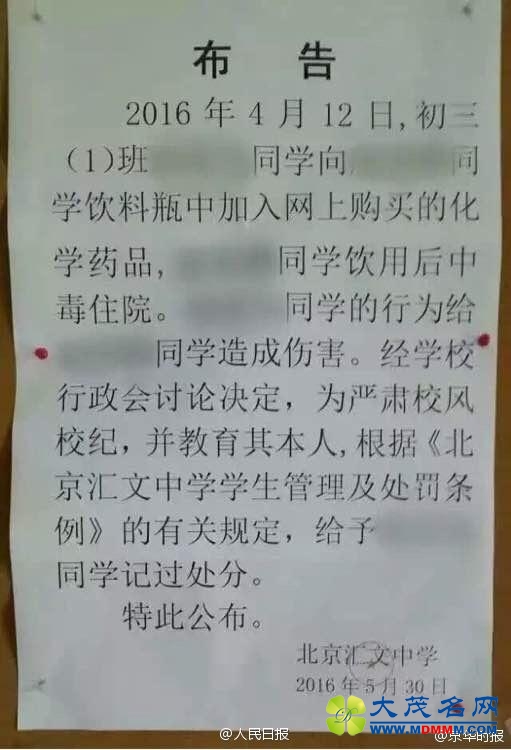 布 告
2016年4月12日,初三
(1)班 同学向 同
学饮料瓶中加入网上购买的化
学药品, 同学饮用后中
毒住院。 同学的行为给
同学造成伤害。经学校
行政会讨论决定，为严肃校风
校纪，并教育其本人,根据《北
京汇文中学学生管理及处罚条
例》的有关规定，给予
同学记过处分。
特此公布。
北京汇文中学
2016年5月30日
大茂名网
WWW.MDMMM.COM
@人民日报
@京华时报